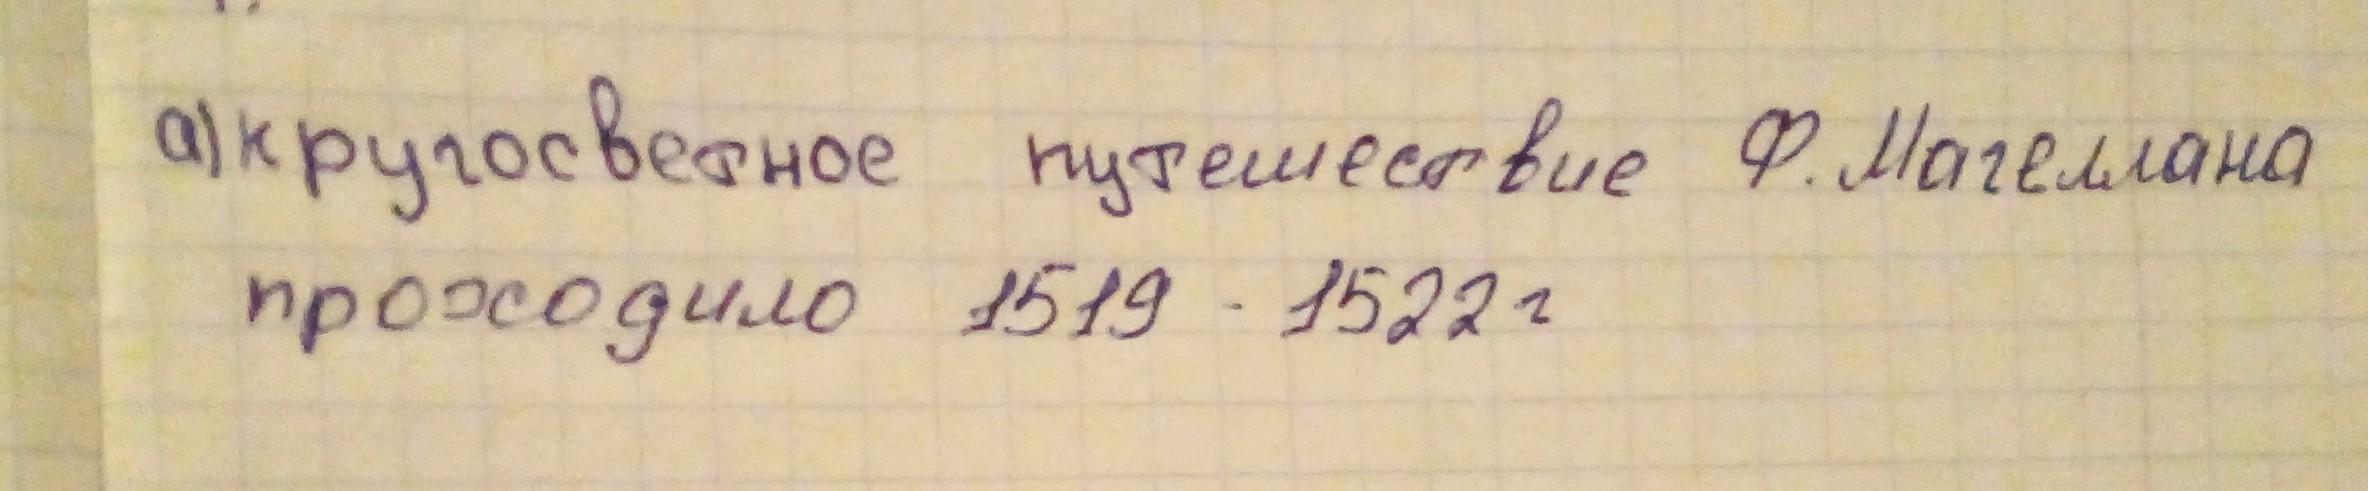 а) кругосветное путешествие Ф. Магеллана
проходило 1519 - 1522 г